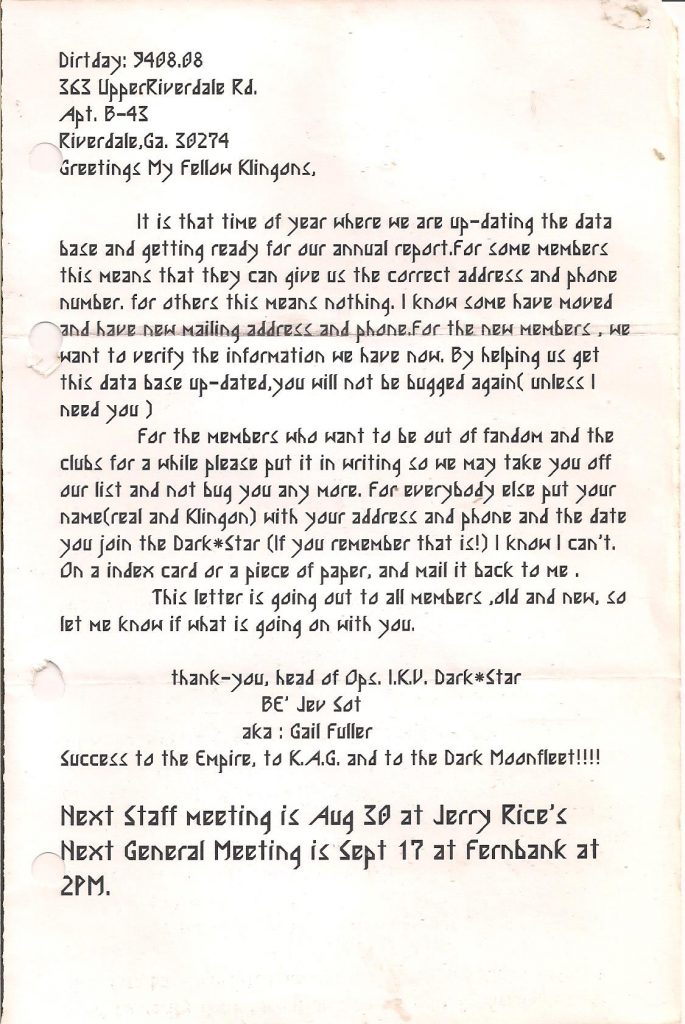 Dirtday: 9408.08
363 UpperRiverdale Rd.
Apt. B-43
Riverdale,Ga. 30274
Greetings My Fellow Klingons,
It is that time of year where we are up-dating the data
base and getting ready for our annual report.For some members
this means that they can give us the correct address and phone
number. for others this means nothing. I know some have moved
and have new mailing address and phone.For the new members , we
want to verify the information we have now. By helping us get
this data base up-dated,you will not be bugged again( unless I
need you )
For the members who want to be out of fandom and the
clubs for a while please put it in writing so we may take you off
our list and not bug you any more. For everybody else put your
name(real and Klingon) with your address and phone and the date
you join the Dark*Star (If you remember that is!) I know I can't.
On a index card or a piece of paper, and mail it back to me .
This letter is going out to all members ,old and new, so
let me know if what is going on with you.
thank-you, head of Ops. I.K.V. Dark*Star
BE' Jev Sot
aka : Gail Fuller
Success to the Empire, to K.A.G. and to the Dark Moonfleet!!!!
Next Staff meeting is Aug 30 at Jerry Rice's
Next General Meeting is Sept 17 at Fernbank at
2PM.